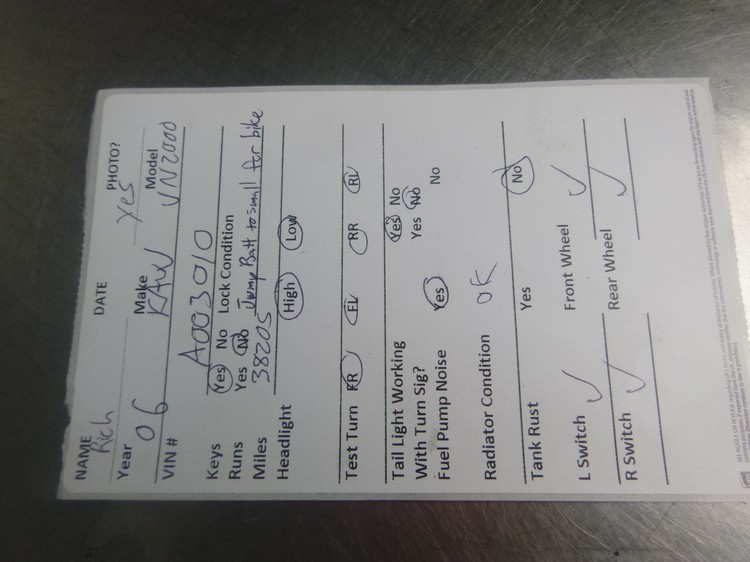 NAME Rich DATE PHOTO? yes
Year 06 Make KAW Model VN2000
VIN # A003010
Keys Yes No Lock Condition
Runs Yes No Jump Batt to small for bike
Miles 38205
Headlight High Low
Test Turn FR FL RR RL
Tail Light Working Yes No
With Turn Sig? Yes No
Fuel Pump Noise Yes No
Radiator Condition OK
Tank Rust Yes No
L Switch ✓ Front Wheel ✓
R Switch ✓ Rear Wheel ✓